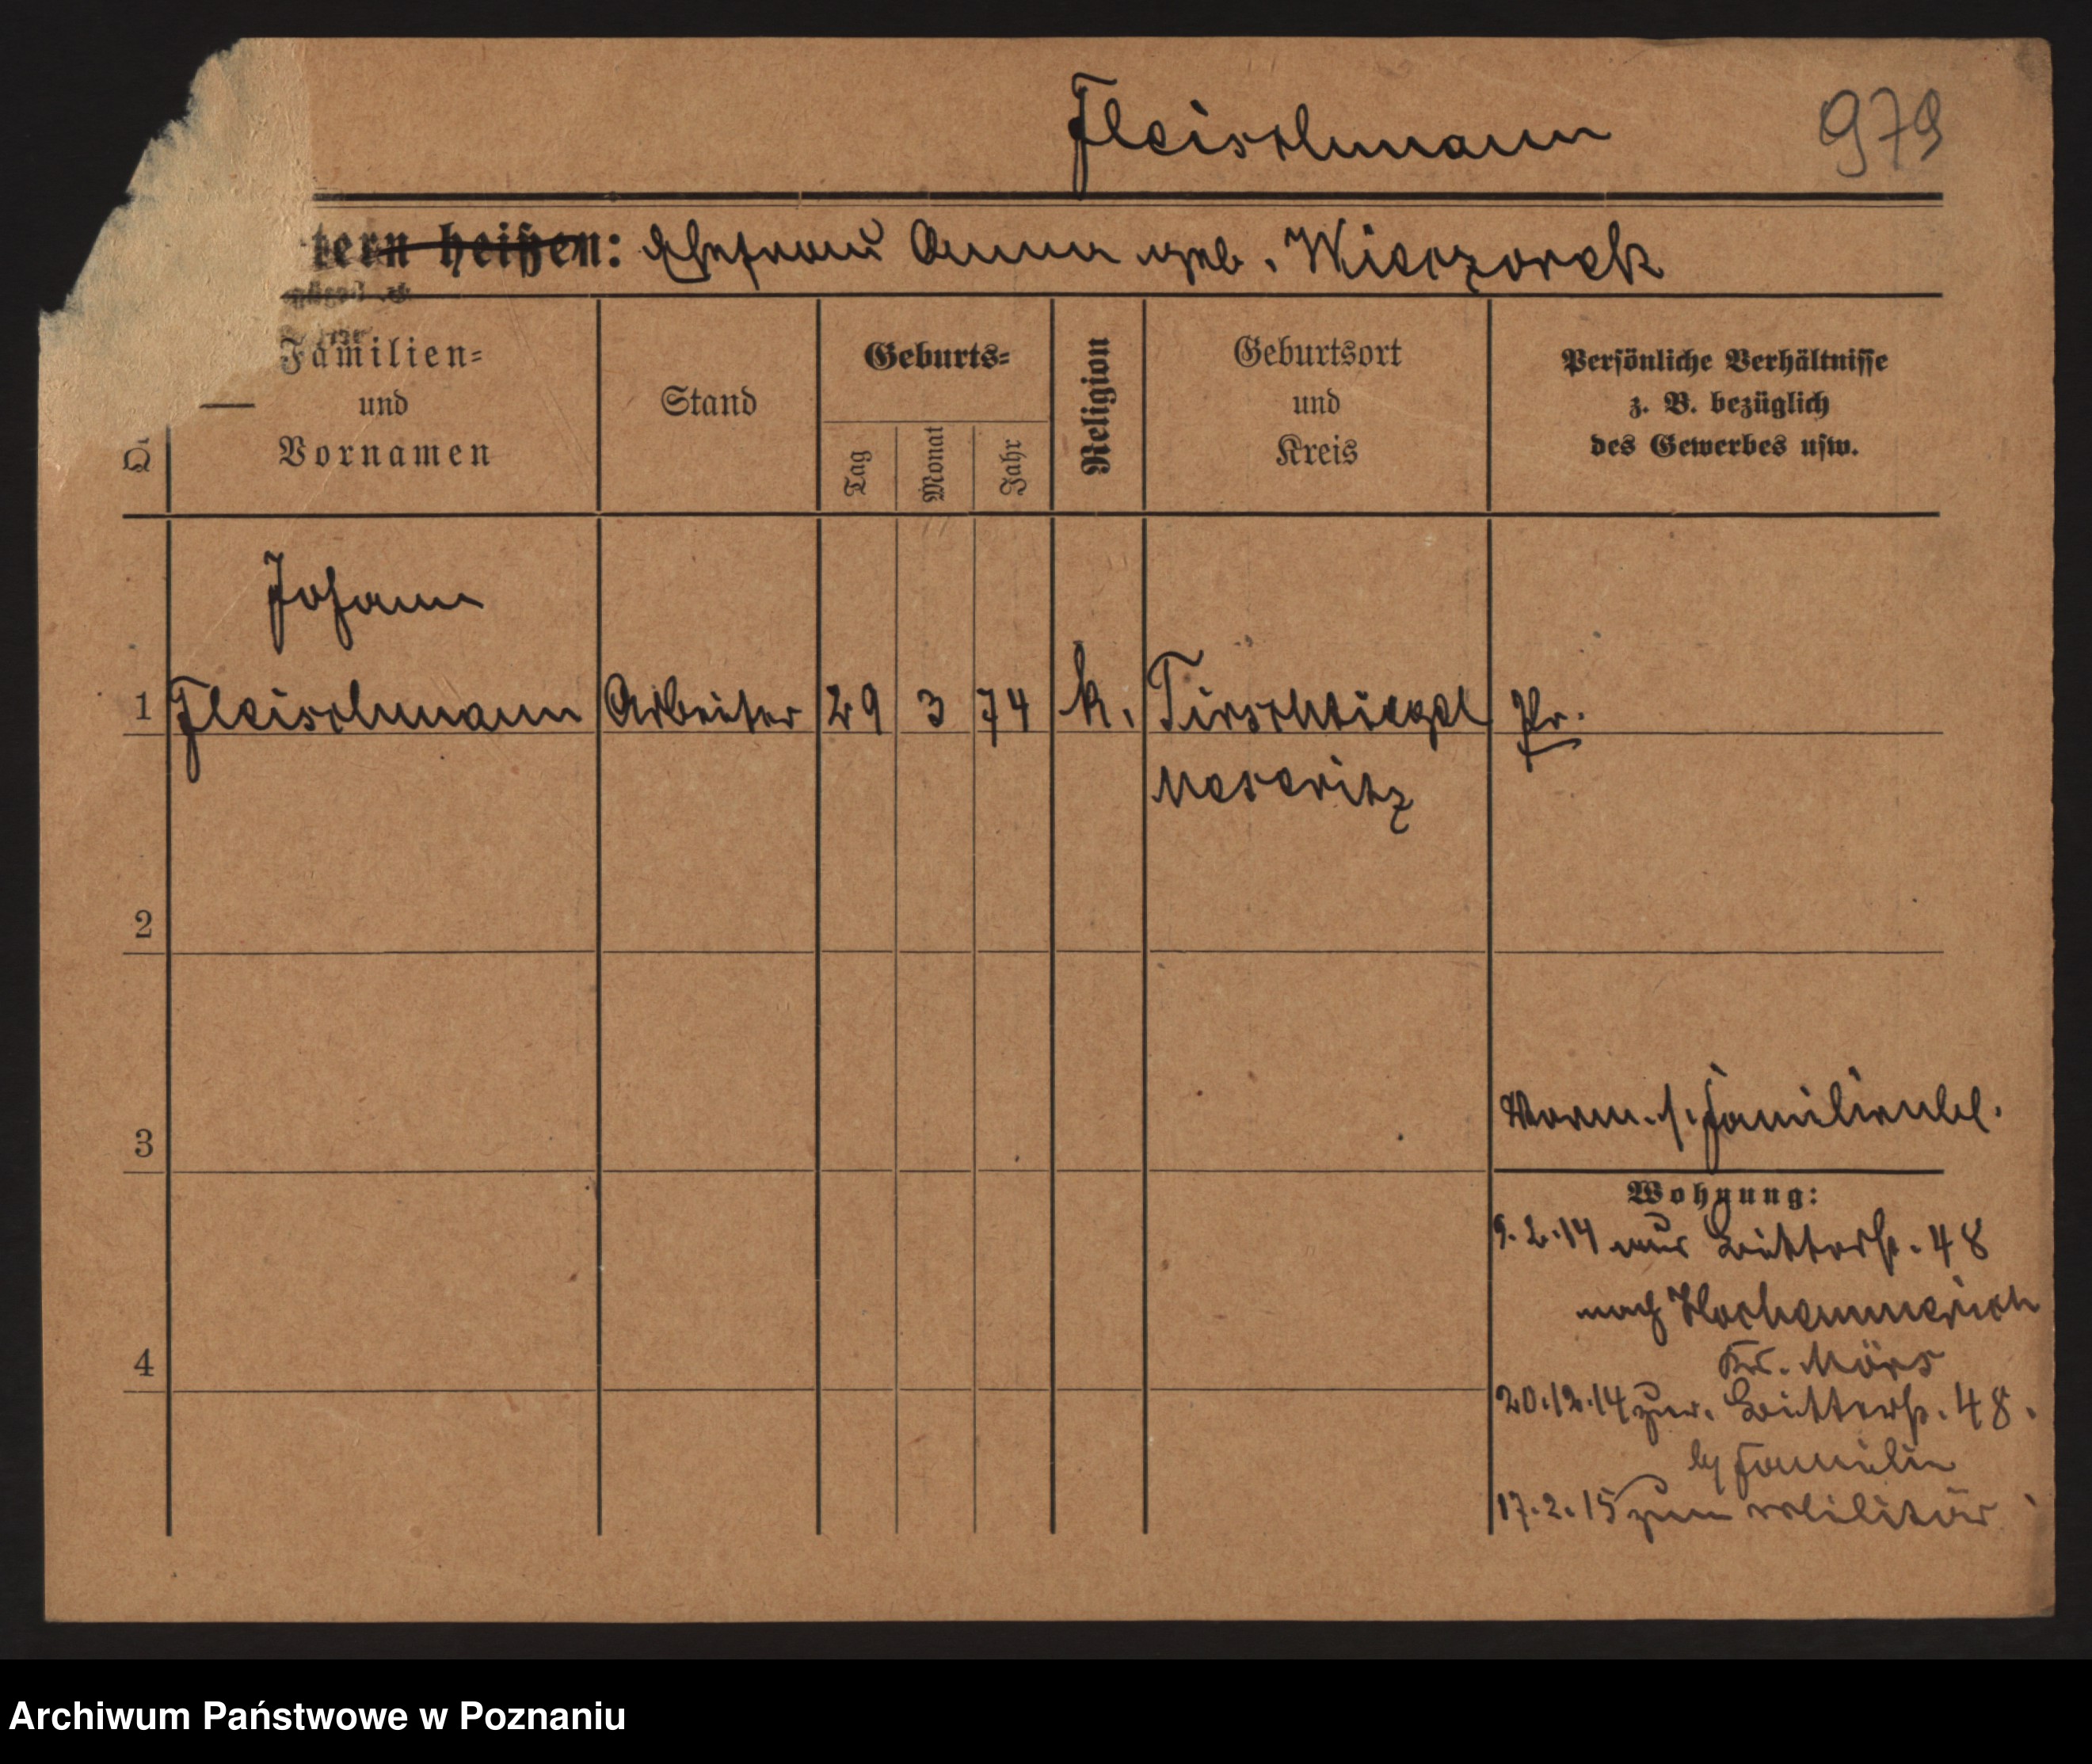 Fleischmann
979
tern heißen: Ehefrau Anna geb. Wieczorek
Familien=
und
Vornamen
Stand
Geburts=
Tag
Monat
Jahr
Religion
Geburtsort
und
Kreis
Persönliche Verhältnisse
z. B. bezüglich
des Gewerbes usw.
Johann
1 Fleischmann Arbeiter 29 3 74 k. Tirschtiegel Pr.
Meseritz
2
3
Vorm. s. Familienbl.
Wohnung:
9.2.14 aus Bitterstr. 48
nach Hochemmerich
Kr. Mörs
4
20.12.14 zur. Bitterstr. 48.
bei Familie
17.2.15 zum Militär
Archiwum Państwowe w Poznaniu